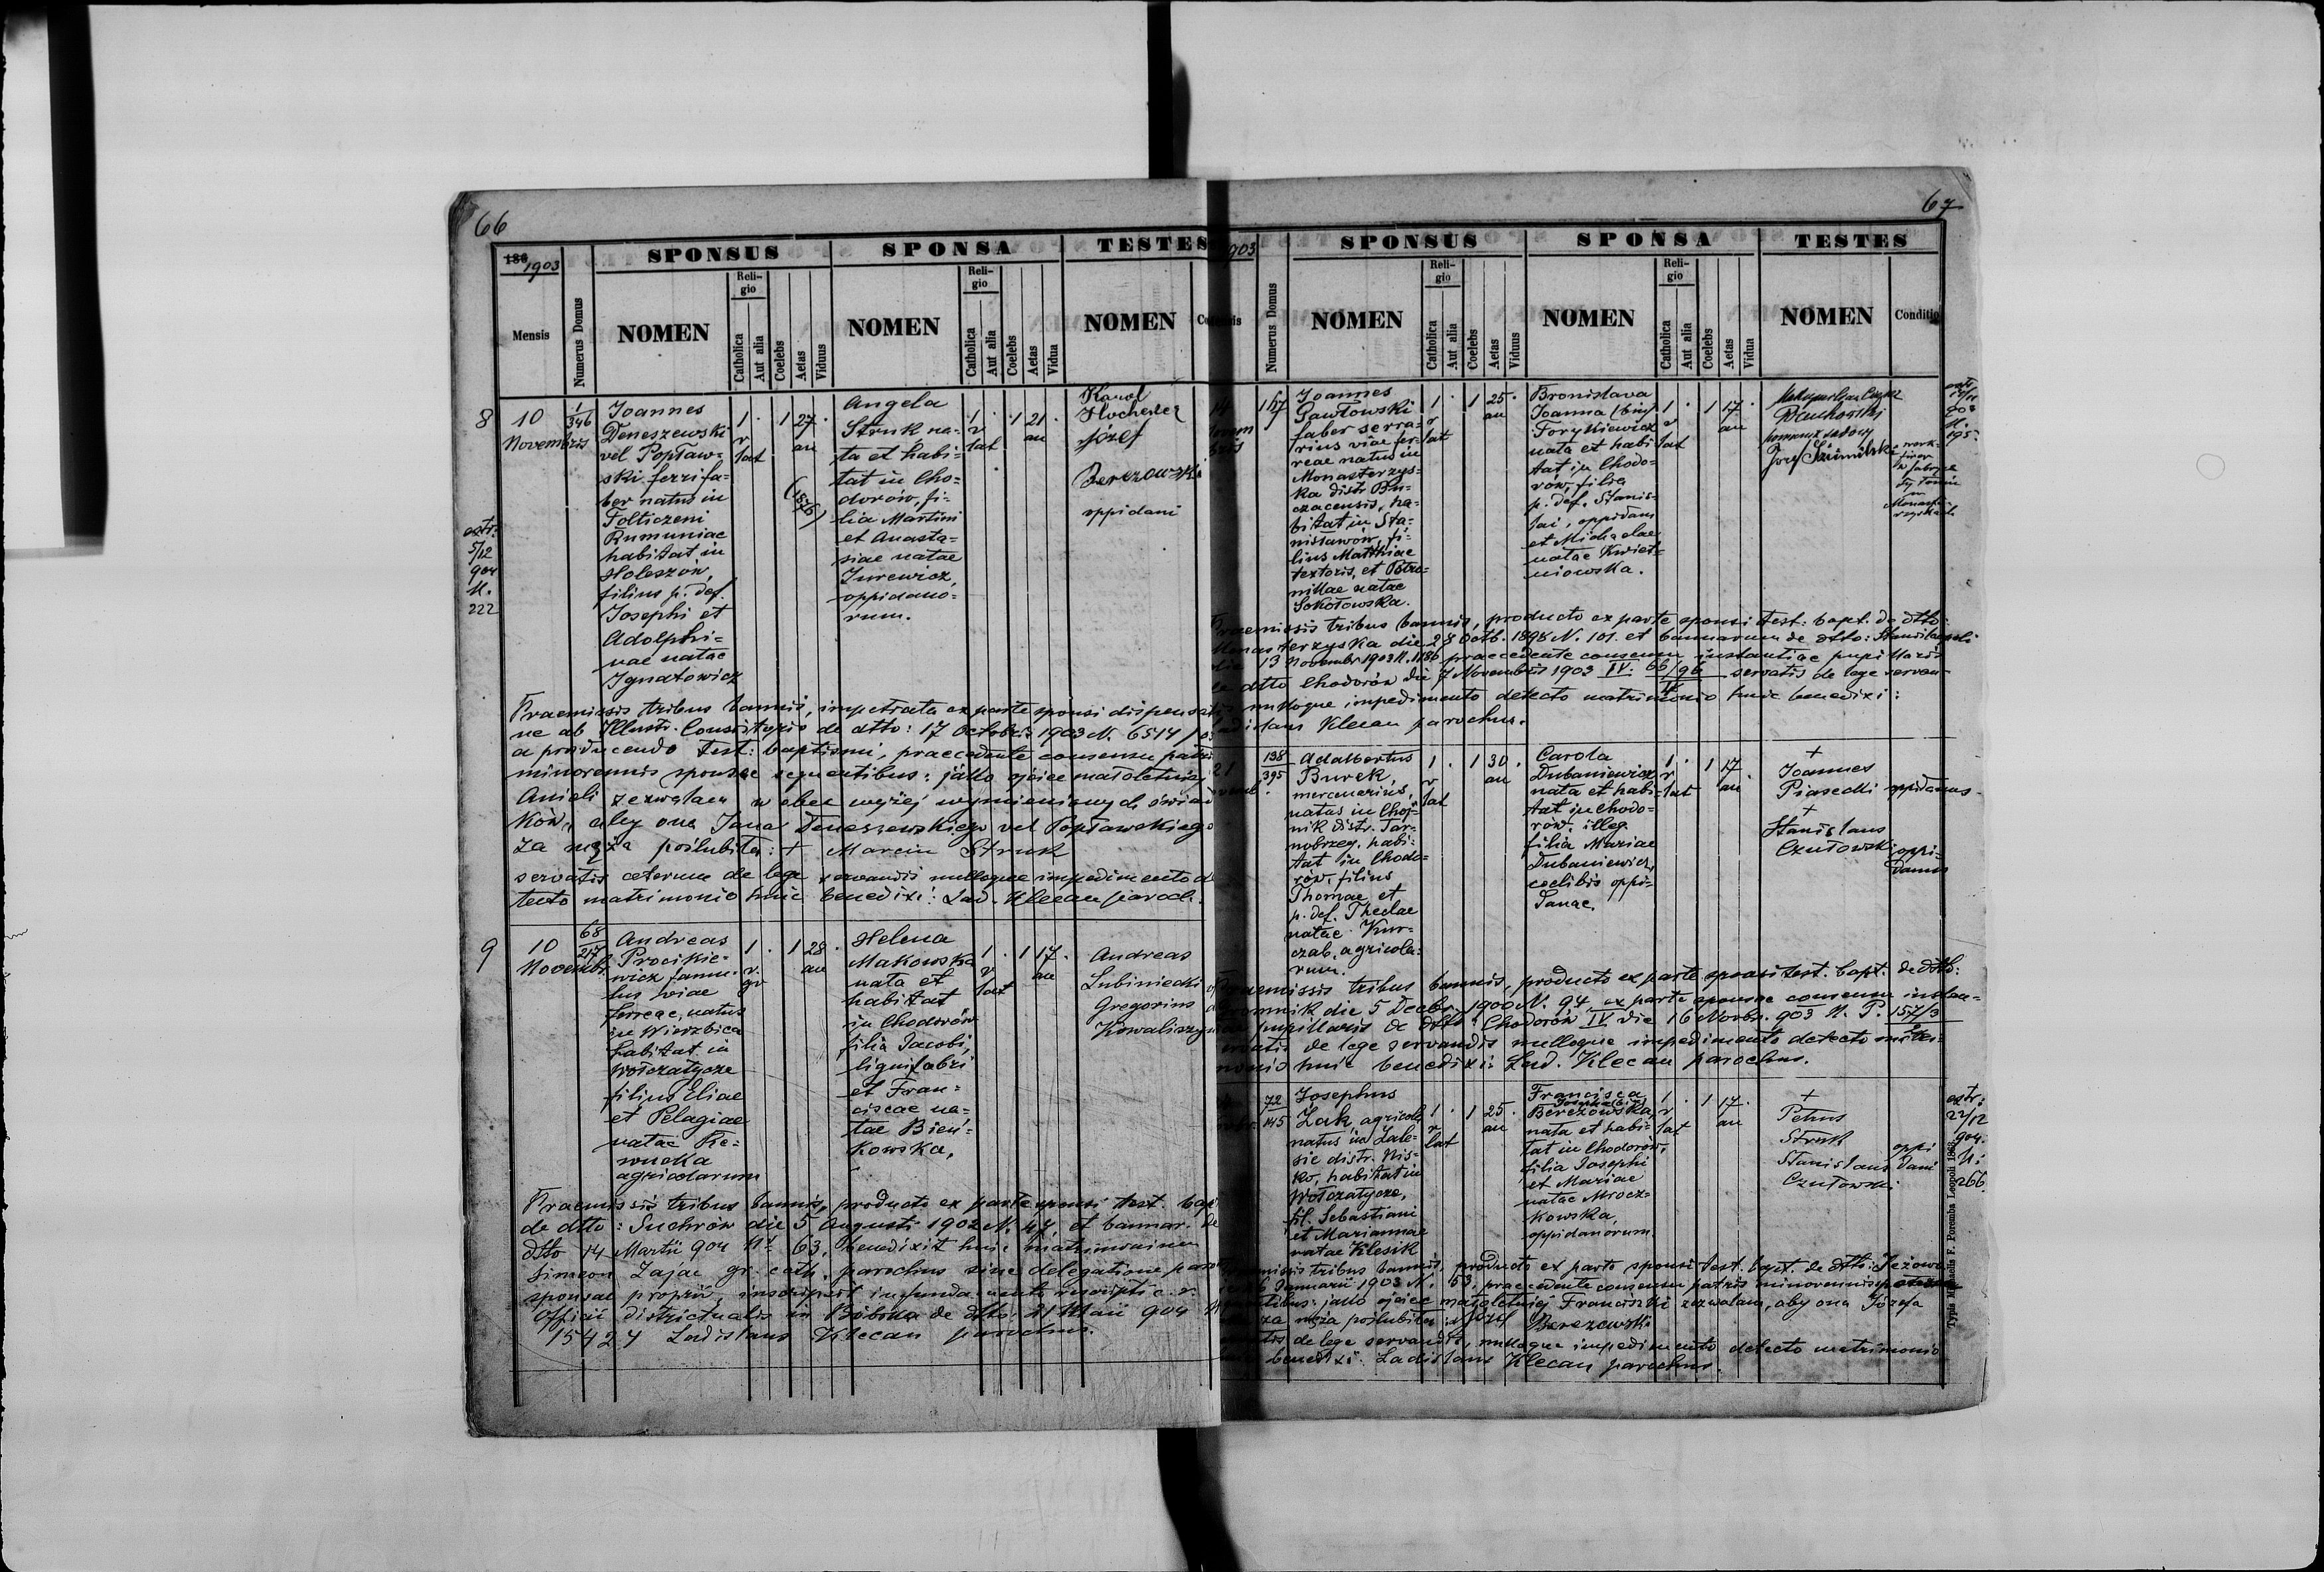 66
186 1903
Mensis
Numerus Domus
SPONSUS
NOMEN
Reli-
gio
Catholica
Aut alia
Coelebs
Aetas
Viduus
SPONSA
NOMEN
Reli-
gio
Catholica
Aut alia
Coelebs
Aetas
Vidua
TESTES
NOMEN
8
10
Novembris
1
346
Joannes
Deneszewski
vel Popław-
ski ferrifa-
ber natus in
Folticzeni
Rumuniae
habitat in
Holeszów,
filius p. def.
Josephi et
Adolphi-
nae natae
Ignatowicz
1
r
lat
1
27
an
(1876)
Angela
Struk na-
ta et habi-
tat in Cho-
dorów, fi-
lia Martini
et Anasta-
siae natae
Jurewicz,
oppidano-
rum.
1
r
lat
1
21
an
Karol
Józef
Berezowski
oppidani
extr.
5/12
904
N.
222
Praemissis tribus bannis, impetrata ex parte sponsi dispensatio-
ne ab Illustr. Consistorio de dtto: 17 Octobris 1903 N. 6544
a producendo test: baptismi, praecedente consensu patris
minorennis sponsae sequentibus: jako ojciec małoletniej
Anieli zezwalam w obec wyżej wymienionych świad
ków, aby ona Jana Deneszewskiego vel Popławskiego
za męża poślubiła: + Marcin Struk
servatis ceterum de lege servandis nulloque impedimento de
tecto matrimonio huic benedixi: Lad. Klecan paroch.
9
10
Novembr.
68
217
Andreas
Procikie-
wicz famu-
lus viae
ferreae, natus
in Wierzbica
habitat in
Wołczatycze
filius Eliae
et Pelagiae
natae Re-
wucka
agricolarum
1
r.
gr
1
28
an
Helena
Makowska
nata et
habitat
in Chodorów
filia Jacobi,
lignifabri
et Fran-
ciscae na-
tae Bień-
kowska,
1
r
lat
1
17
an
Andreas
Lubiniecki
Gregorius
Kowaliszyn
Praemissis tribus bannis, producto ex parte sponsi test. bapt
de dtto: Suchrów die 5 Augusti 1902 N. 47 et bannar. de
dtto 14 Martii 904 N. 63, benedixit huic matrimonium
Simeon Zając gr. cath. parochus sine delegatione paro
sponsae proprii, inscripsit in fundamento rescripti c. r.
Officii districtualis in Bóbrka de dtto: 21 Maii 904 N
15424 Ladislaus Klecan parochus.
67
1903
Numerus Domus
SPONSUS
NOMEN
Reli-
gio
Catholica
Aut alia
Coelebs
Aetas
Viduus
SPONSA
NOMEN
Reli-
gio
Catholica
Aut alia
Coelebs
Aetas
Vidua
TESTES
NOMEN
Conditio
14
Novem
bris
Joannes
Gawłowski
faber serra-
rius viae fer-
reae natus in
Monasterzys-
ka distr Bu-
czacensis, ha-
bitat in Sta-
nisławów, fi-
lius Matthiae
textoris, et Petro-
nillae natae
Sokołowska.
1
r
lat
1
25
an
Bronislava
Joanna (bin)
Forytkiewicz
nata et habi-
tat in Chodo-
rów, filia
p. def. Stanis-
lai, oppidani
et Michaelae
natae Kwiet-
niowska.
1
r
lat
1
17
an
Józef
N.
195
Praemissis tribus bannis, producto ex parte sponsi test: bapt. de dtto:
Monasterzyska die 28 Octb. 1898 N. 101. et bannarum de dtto: Stanislaopoli
die 13 Novembr 1903 N. 1186 praecedente consensu instantiae pupillaris
de dtto Chodorów die 7 Novembris 1903 IV. 66/96 servatis de lege servan-
dis nulloque impedimento detecto matrimonio huic benedixi:
Ladislaus Klecan parochus.
21
198
395
Adalbertus
Burek,
mercenarius,
natus in Choj-
nik distr. Tar-
nobrzeg, habi-
tat in Chodo-
rów, filius
Thomae et
p. def. Theclae
natae Kur-
czab, agricola-
rum.
1
r
lat
1
30
an
Carola
Dubaniewicz
nata et habi-
tat in Chodo-
rów, illeg.
filia Mariae
Dubaniewicz,
coelibis oppi-
danae.
1
r
lat
1
17
an
+
Joannes
Piasecki
oppidanus
+
Stanislaus
Czułowski
oppi-
danus
Praemissis tribus bannis, producto ex parte sponsi test. bapt. de dtto:
Gromnik die 5 Decbr. 1900 N. 94 ex parte sponsae consensu instan-
tiae pupillaris de dtto: Chodorów IV die 16 Novbr. 903 N. P. 157/3
servatis de lege servandis nulloque impedimento detecto matri-
monio huic benedixi: Lad. Klecan parochus.
72
145
Josephus
Żak, agricola
natus in Zale-
sie distr. Nis-
ko, habitat in
Wołczatycze,
fil. Sebastiani
et Mariannae
natae Klesik
1
r
lat
1
25
an
Francisca
Josepha (bin)
Berezowska,
nata et habi-
tat in Chodorów,
filia Josephi
et Mariae
natae Mrocz-
kowska,
oppidanorum.
1
r
lat
1
17
an
+
Petrus
Struk
Stanislaus
Czułowski
oppi
dani
extr.
22/12
904.
N:
266.
Praemissis tribus bannis, producto ex parte sponsi test. bapt. de dtto: Jeżowe
Januarii 1903 N. 53, praecedente consensu patris minorennis sponsae
sequentibus: jako ojciec małoletniej Franciszki zezwalam, aby ona Józefa
za męża poślubiła: Józef Berezowski
servatis de lege servandis, nulloque impedimento detecto matrimonio
huic benedixi: Ladislaus Klecan parochus.
Typis Michaelis F. Poremba Leopoli 1868